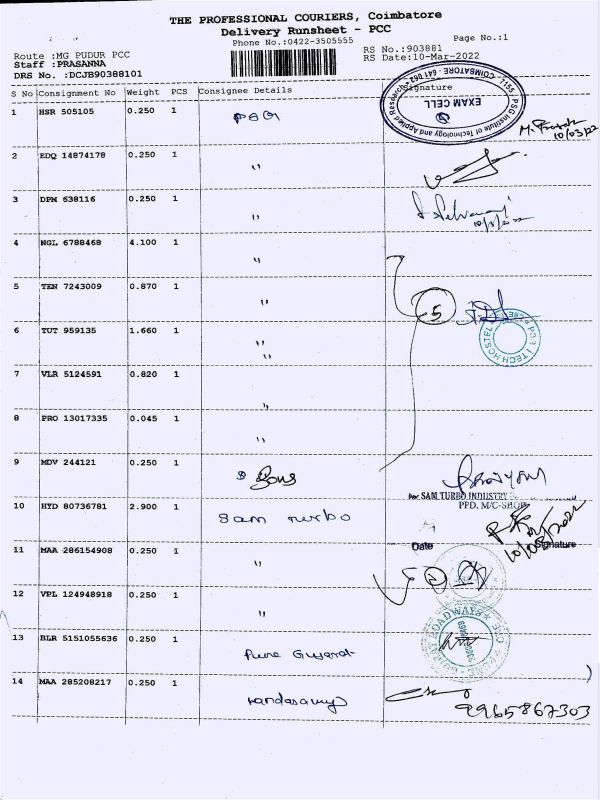 THE PROFESSIONAL COURIERS, Coimbatore
Delivery Runsheet - PCC
Phone No.:0422-3505555
Page No.:1
Route :MG PUDUR PCC
Staff :PRASANNA
DRS No. :DCJB90388101
RS No.:903881
RS Date:10-Mar-2022
S No Consignment No Weight PCS Consignee Details Signature
1 HSR 505105 0.250 1 PSG
PSG Institute of Technology and Applied Research
COIMBATORE - 641 062
EXAM CELL
10/03/22
2 EDQ 14874178 0.250 1 "
3 DPM 638116 0.250 1 "
4 NGL 6788468 4.100 1 "
5 TEN 7243009 0.870 1 "
5
6 TUT 959135 1.660 1 "
"
I TECH HOSTEL
7 VLR 5124591 0.820 1
"
8 PRO 13017335 0.045 1
"
9 MDV 244121 0.250 1 Sons
for SAM TURBO INDUSTRY
PPD. M/C-SHOP
10 HYD 80736781 2.900 1 Sam Turbo
Date Signature
11 MAA 286154908 0.250 1 "
12 VPL 124948918 0.250 1 "
13 BLR 5151055636 0.250 1 Pure Gujarat
ROADWAYS
14 MAA 285208217 0.250 1 Kandasamy
9965867303